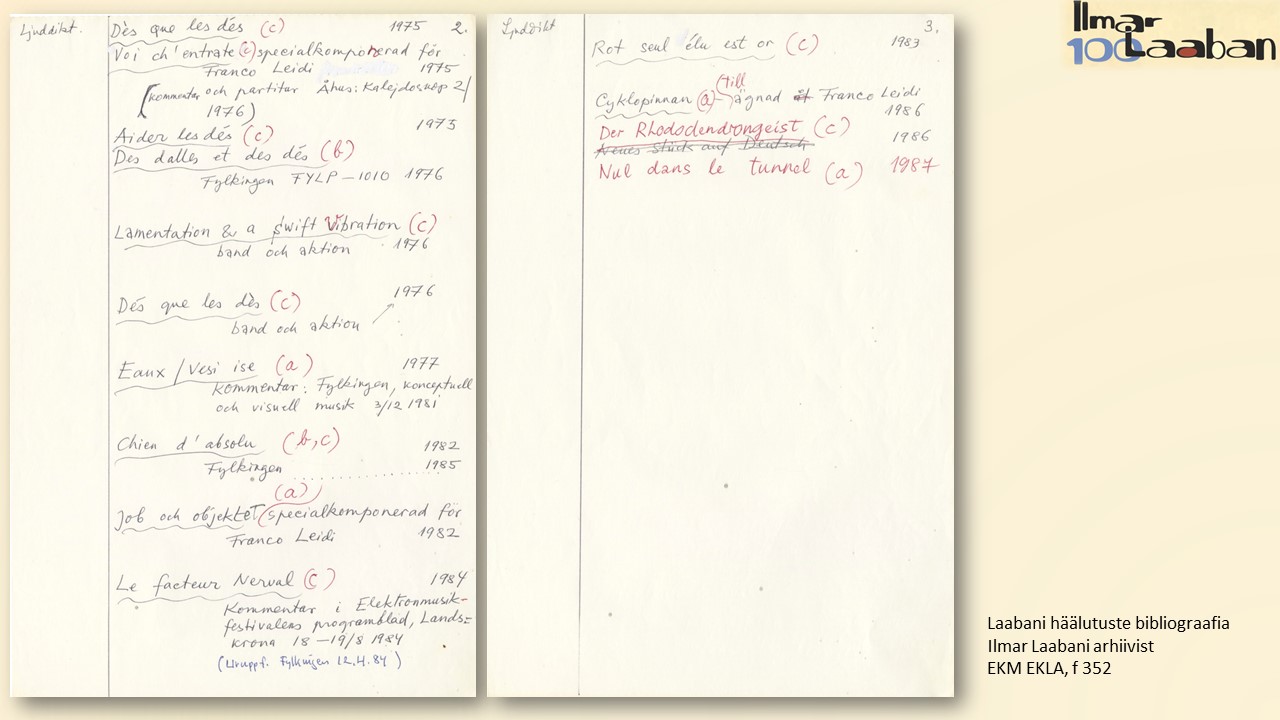 Ljuddikt.
2.
Dès que les dés (c) 1975
Voi ch'entrate (c) specialkomponerad för
Franco Leidi 1975
(kommentar och partitur Åhus: Kalejdoskop 2/
1976)
Aider les dés (c) 1975
Des dalles et des dés (b)
Fylkingen FYLP – 1010 1976
Lamentation & a swift Vibration (c)
band och aktion 1976
Dés que les dès (c) 1976
band och aktion
Eaux / Vesi ise (a) 1977
Kommentar: Fylkingen, konceptuell
och visuell musik 3/12 1981
Chien d'absolu (b,c) 1982
Fylkingen 1985
(a)
Job och objektet (specialkomponerad för
Franco Leidi 1982
Le facteur Nerval (c) 1984
Kommentar i Elektronmusik-
festivalens programblad, Lands=
krona 18 – 19/8 1984
(Uruppf. Fylkingen 12.4.84)
Ljuddikt
3.
Rot seul élu est or (c) 1983
till
Cyklopinnan (a) – ägnad åt Franco Leidi
1986
Der Rhododendrongeist (c) 1986
Neues Stück auf Deutsch
Nul dans le tunnel (a) 1987
Ilmar
100 Laaban
Laabani häälutuste bibliograafia
Ilmar Laabani arhiivist
EKM EKLA, f 352